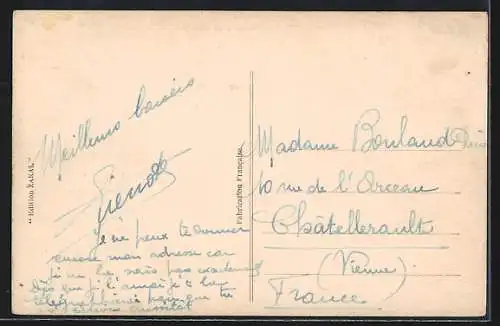 Meilleurs baisers
je ne peux te donner
encore mon adresse car
je ne la sais pas exactement
Dès que je l'aurai je te la
pour que tu
Madame Bouland
10 rue de l'Arceau
Châtellerault
(Vienne)
France
"Edition ZAKAL"
Fabrication Française